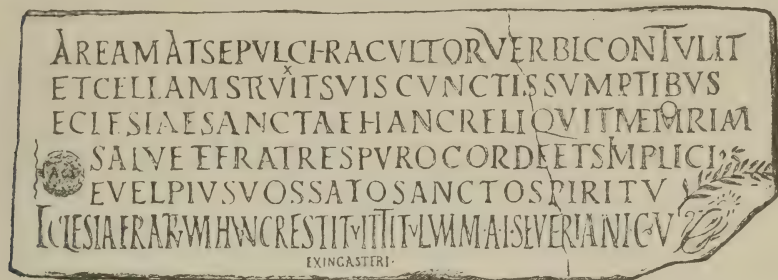 AREAM AT SEPVLCHRA CVLTOR VERBI CONTVLIT
ET CELLAM STRVXIT SVIS CVNCTIS SVMPTIBVS
ECLESIAE SANCTAE HANC RELIQVIT MEMORIAM
SALVETE FRATRES PVRO CORDE ET SIMPLICI
A ω EVELPIVS VOS SATO SANCTO SPIRITV
ECLESIA FRATRVM HVNC RESTITVIT TITVLVM M·A·I·SEVERIANI C·V
EX ING ASTERI·